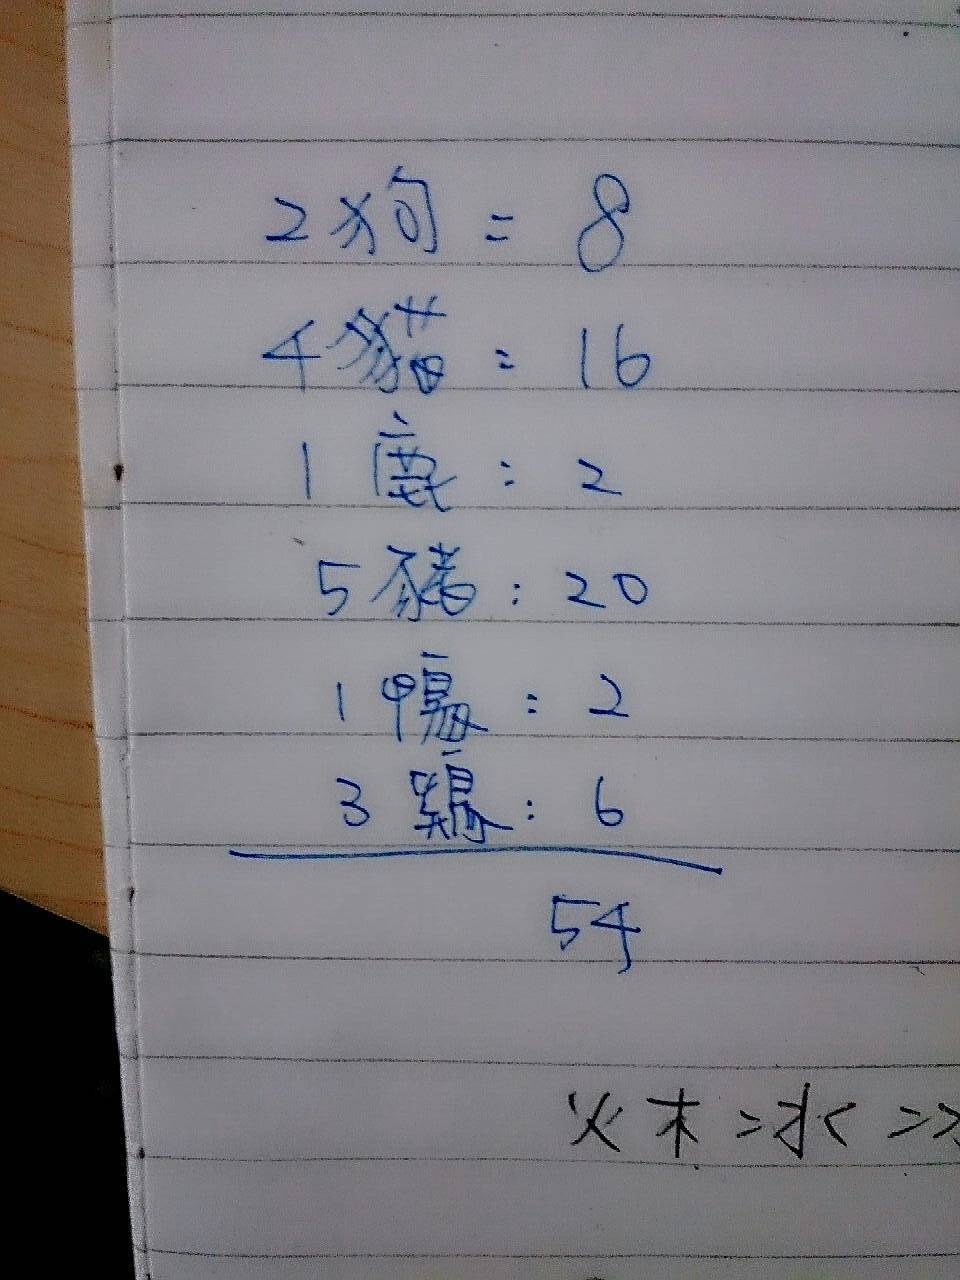 2狗 = 8
4貓 : 16
1鹿 : 2
5豬 : 20
1鴨 : 2
3雞 : 6
54
火木=水=>